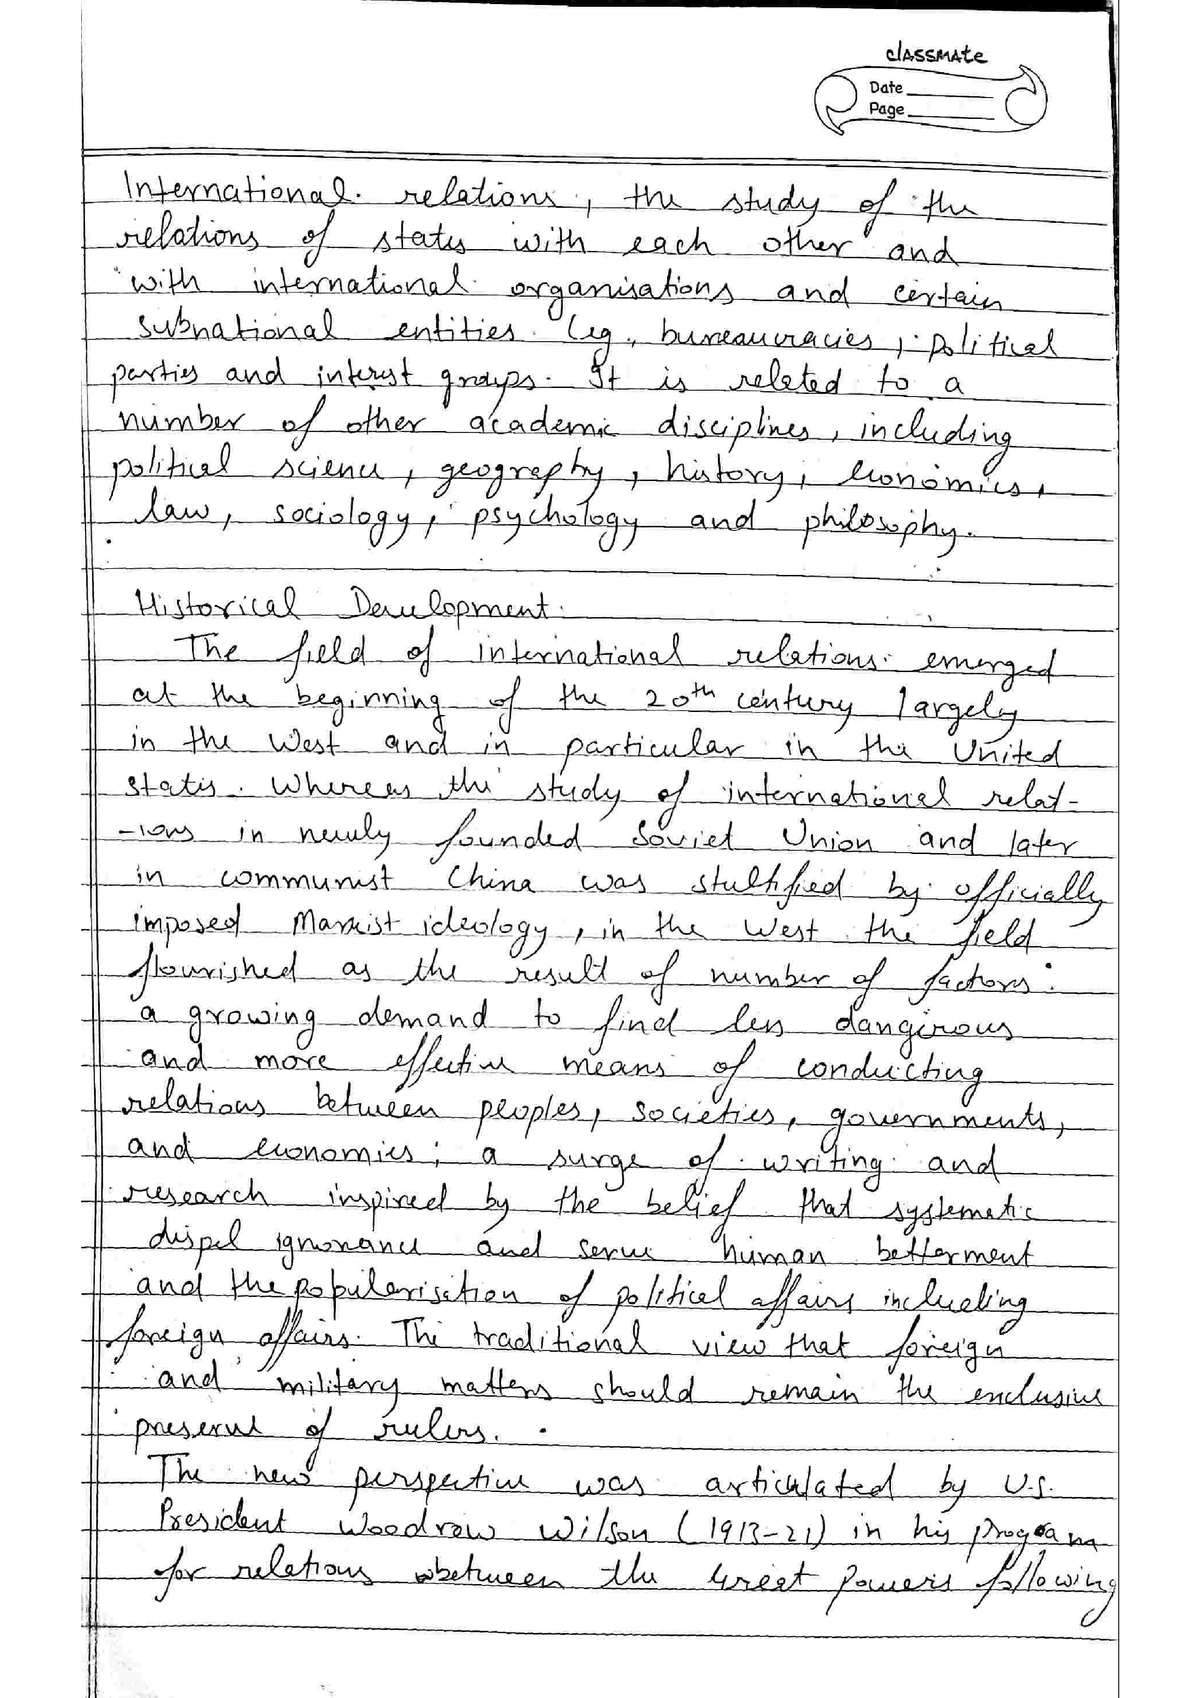 classmate
Date
Page
International relations, the study of the
relations of states with each other and
with international organisations and certain
subnational entities (eg., bureaucracies, political
parties and interest groups. It is related to a
number of other academic disciplines, including
political science, geography, history, economics,
law, sociology, psychology and philosophy.
Historical Development
The field of international relations emerged
at the beginning of the 20th century largely
in the West and in particular in the United
States. Whereas the study of international relat-
-ions in newly founded Soviet Union and later
in communist China was stultified by officially
imposed Marxist ideology, in the West the field
flourished as the result of number of factors:
a growing demand to find less dangerous
and more effective means of conducting
relations between peoples, societies, governments,
and economies; a surge of writing and
research inspired by the belief that systematic
dispel ignorance and serve human betterment
and the popularisation of political affairs including
foreign affairs. The traditional view that foreign
and military matters should remain the exclusive
preserve of rulers.
The new perspective was articulated by U.S.
President Woodrow Wilson (1913-21) in his program
for relations between the Great Powers following